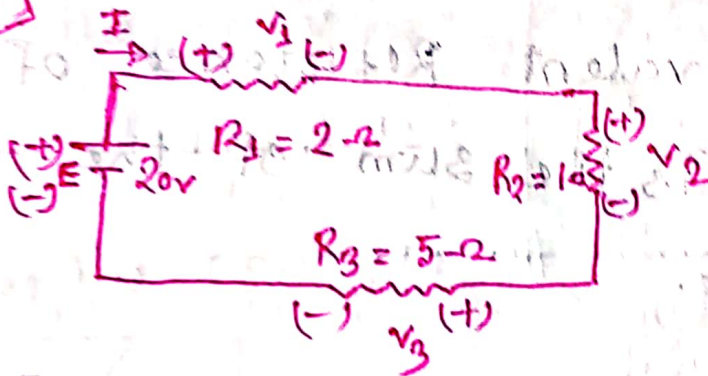 I
(+) V1 (-)
(+)
(-) E 20v
R1 = 2 Ω
R2 = 1Ω
(+)
V2
(-)
R3 = 5 Ω
(-) V3 (+)